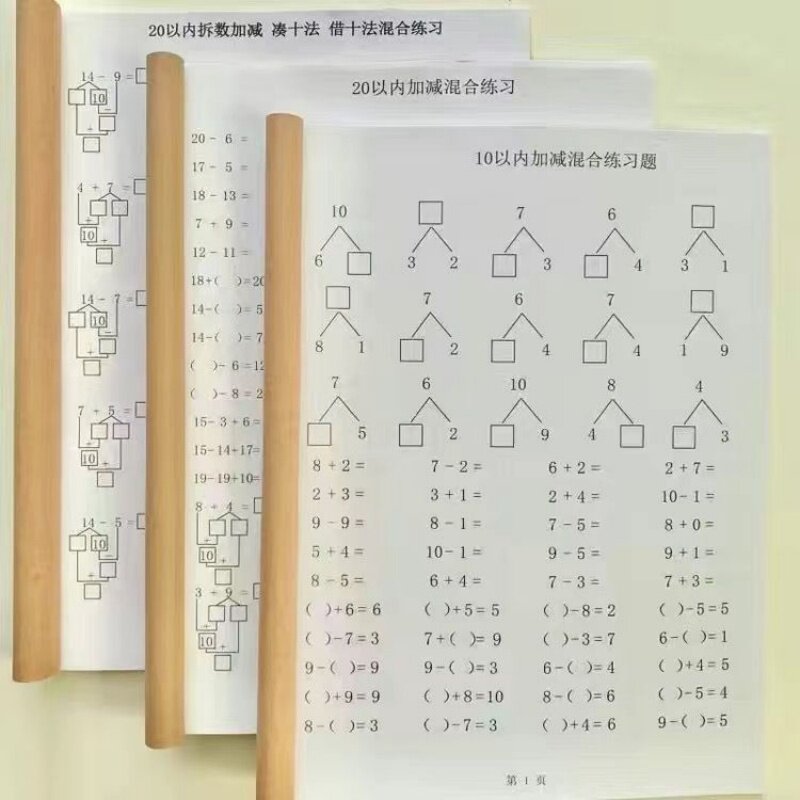 20以内拆数加减 凑十法 借十法混合练习
14 - 9 =
10
-
+
4 + 7 =
+
10
+
14 - 7 =
10
-
+
7 + 5 =
+
10
+
14 - 5 =
10
-
+
20以内加减混合练习
20 - 6 =
17 - 5 =
18 - 13 =
7 + 9 =
12 - 11 =
18+( )=20
14-( )= 5
14-( )= 7
( )- 6=12
( )- 8= 2
15- 3 + 6=
15-14+17=
19-19+10=
8 + 4 =
+
10
+
3 + 9 =
+
10
+
10以内加减混合练习题
10 7 6
6 3 2 3 4 3 1
7 6 7
8 1 2 4 4 1 9
7 6 10 8 4
5 2 9 4 3
8 + 2 = 7 - 2 = 6 + 2 = 2 + 7 =
2 + 3 = 3 + 1 = 2 + 4 = 10- 1 =
9 - 9 = 8 - 1 = 7 - 5 = 8 + 0 =
5 + 4 = 10- 1 = 9 - 5 = 9 + 1 =
8 - 5 = 6 + 4 = 7 - 3 = 7 + 3 =
( )+6= 6 ( )+5= 5 ( )-8= 2 ( )-5= 5
( )-7= 3 7+( )= 9 ( )-3= 7 6-( )= 1
9-( )= 9 9-( )= 3 6-( )= 4 ( )+4= 5
( )+9= 9 ( )+8=10 8-( )= 6 ( )-5= 4
8-( )= 3 ( )-7= 3 ( )+4= 6 9-( )= 5
第 1 页